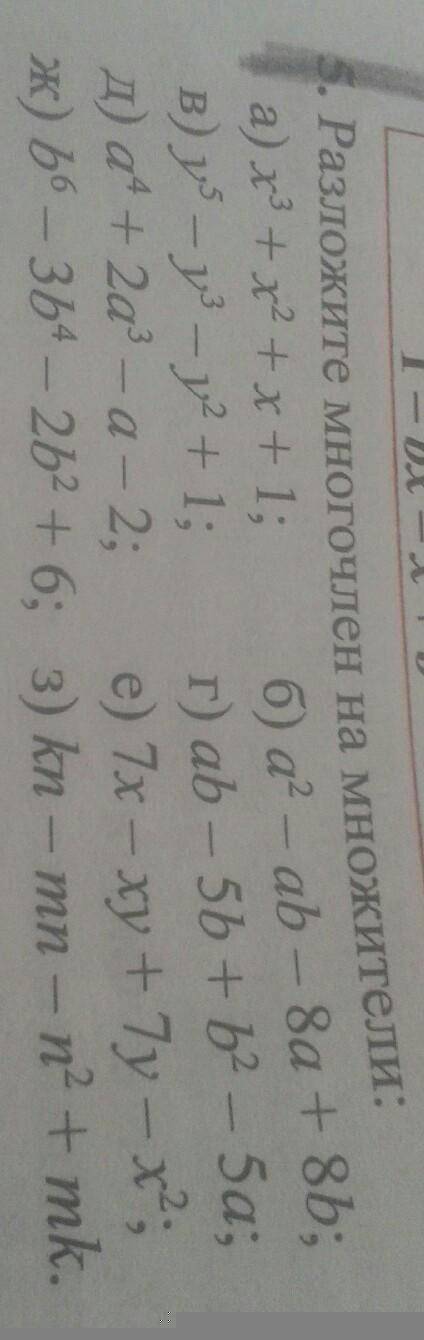 1 – bx – x + b
5. Разложите многочлен на множители:
а) x³ + x² + x + 1; б) a² – ab – 8a + 8b;
в) y⁵ – y³ – y² + 1; г) ab – 5b + b² – 5a;
д) a⁴ + 2a³ – a – 2; е) 7x – xy + 7y – x²;
ж) b⁶ – 3b⁴ – 2b² + 6; з) kn – mn – n² + mk.